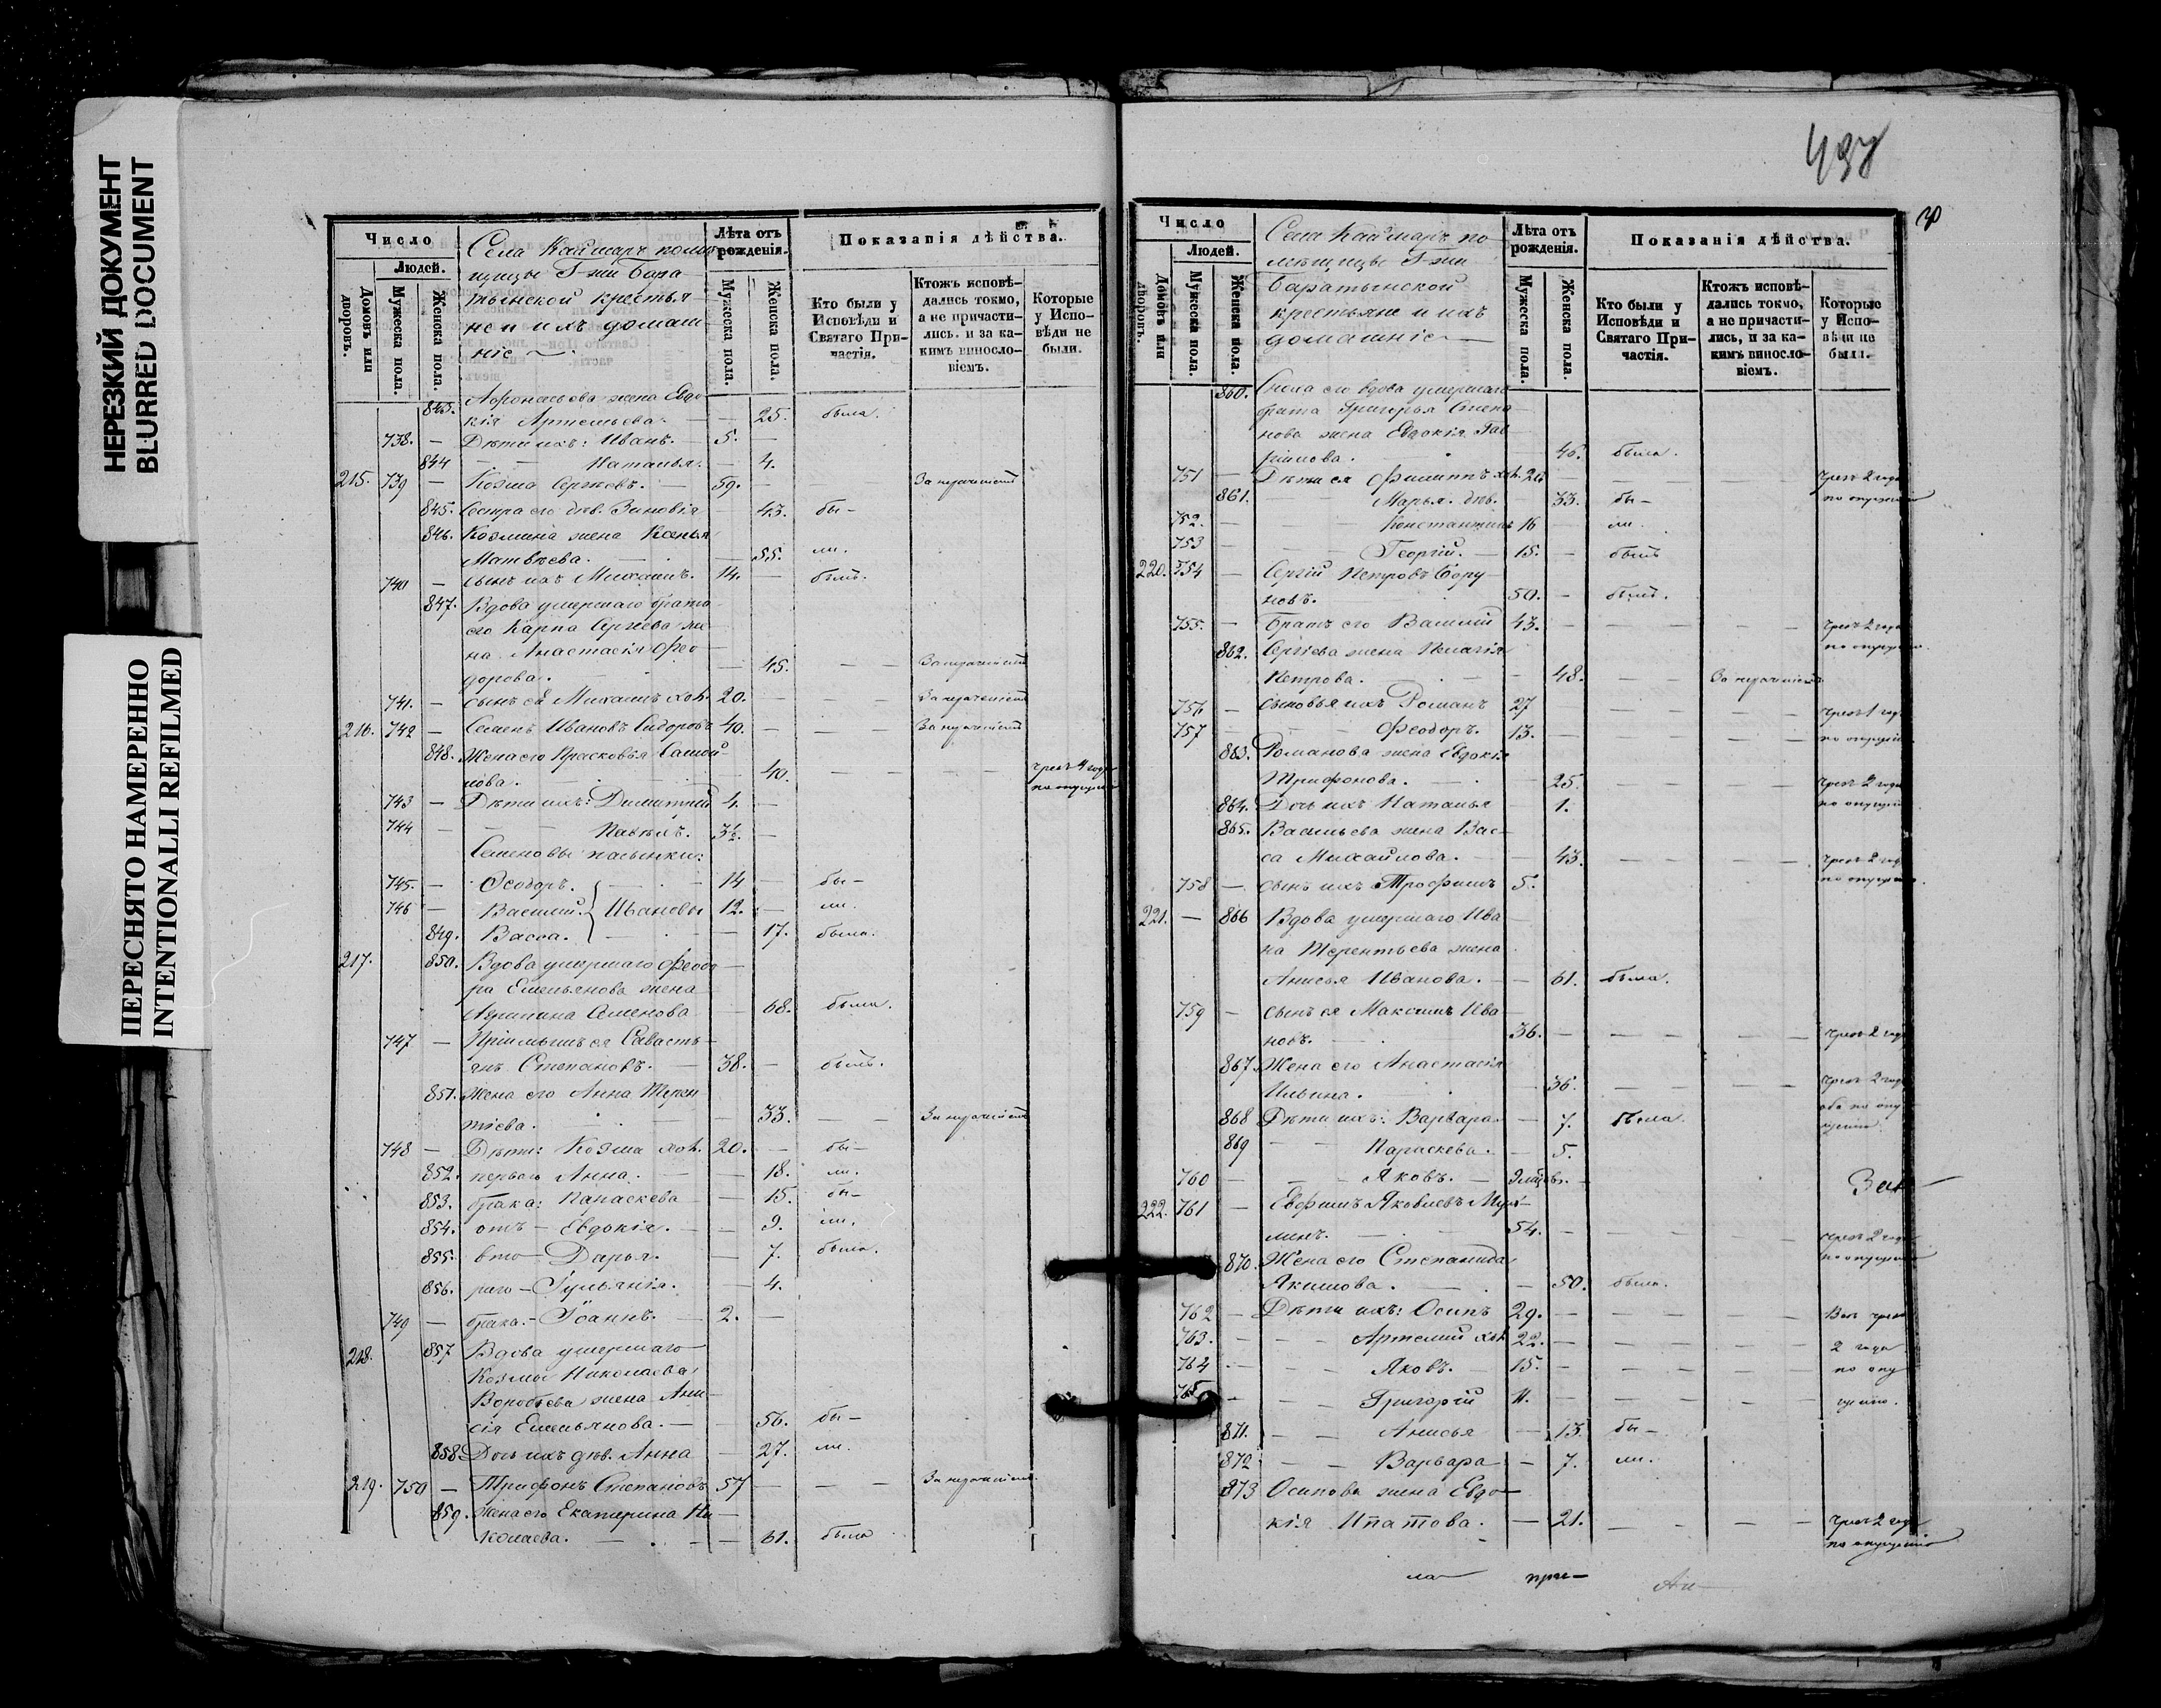 НЕРЕЗКИЙ ДОКУМЕНТ
BLURRED DOCUMENT
ПЕРЕСНЯТО НАМЕРЕННО
INTENTIONALLI REFILMED
Число
Людей.
Домовъ или дворовъ.
Мужеска пола.
Женска пола.
Села Каймаръ помѣ-
щицы Г-жи Бора-
тынской крестья-
не и ихъ домаш-
ніе
Лѣта отъ рожденія.
Мужеска пола.
Женска пола.
Показанія дѣйства.
Кто были у Исповѣди и Святаго При-частія.
Ктожъ исповѣ-дались токмо, а не причасти-лись, и за ка-кимъ виносло-віемъ.
Которые у Испо-вѣди не были.
843. Афонасьева жена Евдо-
кія Артемьева. — 25. была.
738. — Дѣти ихъ: Иванъ. — 5. —
844 — — Наталья. — 4.
215. 739 — Козма Сергѣевъ. — 59. —
845. Сестра его дѣв. Зиновія — 43. бы-
846. Козмина жена Ксенья
Матвѣева. — — 55. ли.
740 — сынъ ихъ Михаилъ. 14. — былъ.
847. Вдова умершаго брата
его Карпа Сергѣева же-
на Анастасія Фео-
дорова. — 45. — —
741. — сынъ ея Михаилъ хол. 20. — — —
216. 742 — Семенъ Ивановъ Сидоровъ 40. — — —
848. Жена его Прасковья
нова. — 40. — — — — чрезъ 4 года
по опущенію
743 — Дѣти ихъ: Димитрій 4. —
744 — — — Павелъ. 3½. —
Семеновы пасынки:
745. — Ѳеодоръ. — 14 — бы-
746 — Василий. Ивановы 12. — ли.
849. Васса. — — 17. была.
217. 850. Вдова умершаго Феодо-
ра Емельянова жена
Агрипина Семенова — 68. была.
747 — Пріимышъ ея Савасть-
янъ Степановъ. — 38. — былъ.
851. Жена его Анна Терен-
тіева. — 33. — —
748 — Дѣти: Козма хол. 20. — бы-
852. перваго Анна. — — 18. ли.
853. брака: Параскева — 15. бы-
854. отъ — Евдокія. — — 9. ли.
855. вто — Дарья. — 7. была.
856. раго — Іульянія. — 4.
749 — брака. — Іоаннъ. — 2. —
218. 857 Вдова умершаго
Козмы Николаева
Воробьева жена Ани-
сія Емельянова. — 56. бы-
858 Дочь ихъ дѣв. Анна — 27. ли.
219. 750 — Трифонъ Степановъ 57 — — —
859. Жена его Екатерина Ни-
колаева. — — 61. была
20
Число
Людей.
Домовъ или дворовъ.
Мужеска пола.
Женска пола.
Села Каймаръ по-
мѣщицы Г-жи
Баратынской
крестьяне и ихъ
домашніе
Лѣта отъ рожденія.
Мужеска пола.
Женска пола.
Показанія дѣйства.
Кто были у Исповѣди и Святаго При-частія.
Ктожъ исповѣ-дались токмо, а не причасти-лись, и за ка-кимъ виносло-віемъ.
Которые у Испо-вѣди не были.
860. его вдова умершаго
брата Григорья Степа-
нова жена Евдокія Гав-
рилова. — 46. была.
751 — Дѣти ея Филиппъ хол. — — — чрезъ 2 года
861. Марья. дѣв. 33. бы- по опущенію
752. — — — Константинъ 16 — ли.
753 — — — Георгій. — 15. — былъ
220. 754 — Сергій Петровъ Бору-
новъ. 50. — былъ.
755. — Братъ его Василий 43. — — — — чрезъ 2 года
862. Сергіева жена Пелагія по опущенію
Петрова. — 48. — —
756 — сыновья ихъ Романъ 27 — — — чрезъ 1 годъ
757 — — Феодоръ. 13. — — — по опущенію
863. Романова жена Евдокія
Трифонова. — 25. — — — чрезъ 2 года
864. Дочь ихъ Наталья — 1. по опущенію
865. Васильева жена Вас-
са Михайлова. — 43. — — — — чрезъ 2 года
758 — сынъ ихъ Трофимъ 5. по опущенію
221. — 866 Вдова умершаго Ива-
на Терентьева жена
Анисья Иванова. — 61. была.
759 — сынъ ея Максимъ Ива-
новъ. — 36. — — — — чрезъ 2 года
867. Жена его Анастасія
Ильина. — 36. — — — — чрезъ 2 года
868 Дѣти ихъ: Варвара — 7. была. оба по опу-
869 — — Параскева. — 5. щенію.
760 — — — Яковъ. —
222. 761 — Евфимъ Яковлевъ
линъ. — 54. — — — чрезъ 2 года
870. Жена его Степанида по опущенію
Якимова. — 50. была.
762 — Дѣти ихъ: Осипъ 29. — — — — Всѣ чрезъ
763. — — — Артемий хол 22. — — — — 2 года
764 — — — Яковъ. 15. — — — — по опу
765 — — — Григорій 11. — — — — щенію.
871. — — Анисья — 13. бы-
872 — — Варвара — 7. ли.
873 Осипова жена Евдо-
кія Ипатова. — 21. — — — чрезъ 2 года
по опущенію
ла- при-